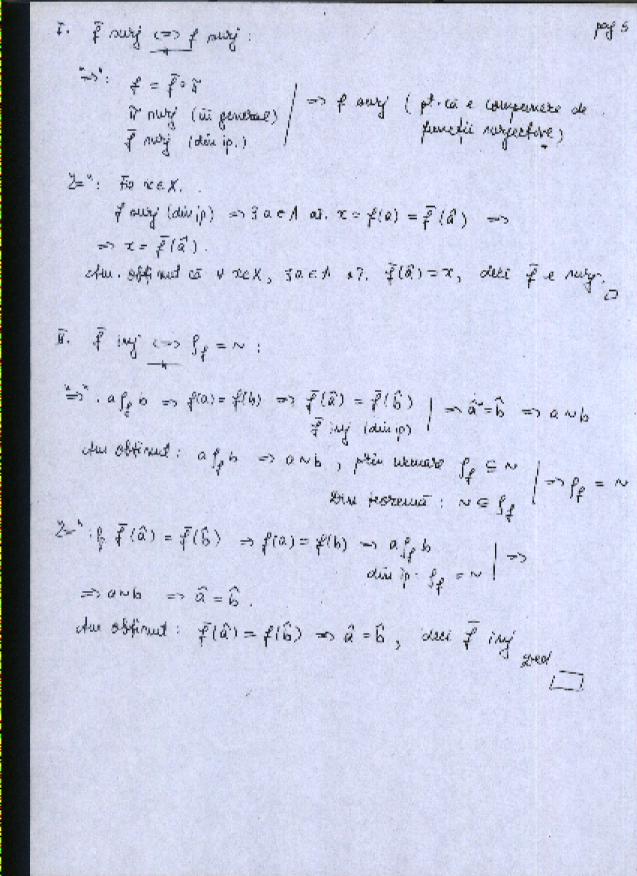 pag 5
I. f̄ surj <=> f surj :
"=>": f = f̄∘π
π surj (în general)
f̄ surj (din ip.) | => f surj ( pt. că e compunere de
funcții surjective)
"<=": Fie x∈X.
f surj (din ip) => ∃ a ∈ A aî. x = f(a) = f̄(â) =>
=> x = f̄(â).
Am obținut că ∀ x∈X, ∃ a∈A aî. f̄(â) = x, deci f̄ e surj. □
II. f̄ inj <=> ρ_f = ~ :
"=>". a ρ_f b => f(a) = f(b) => f̄(â) = f̄(b̂) | => â = b̂ => a ~ b
f̄ inj (din ip)
Am obținut : a ρ_f b => a ~ b , prin urmare ρ_f ⊆ ~ | => ρ_f = ~
Din teoremă : ~ ⊆ ρ_f
"<=": f̄(â) = f̄(b̂) => f(a) = f(b) => a ρ_f b | =>
din ip. ρ_f = ~
=> a ~ b => â = b̂ .
Am obținut : f̄(â) = f(b̂) => â = b̂ , deci f̄ inj
qed □